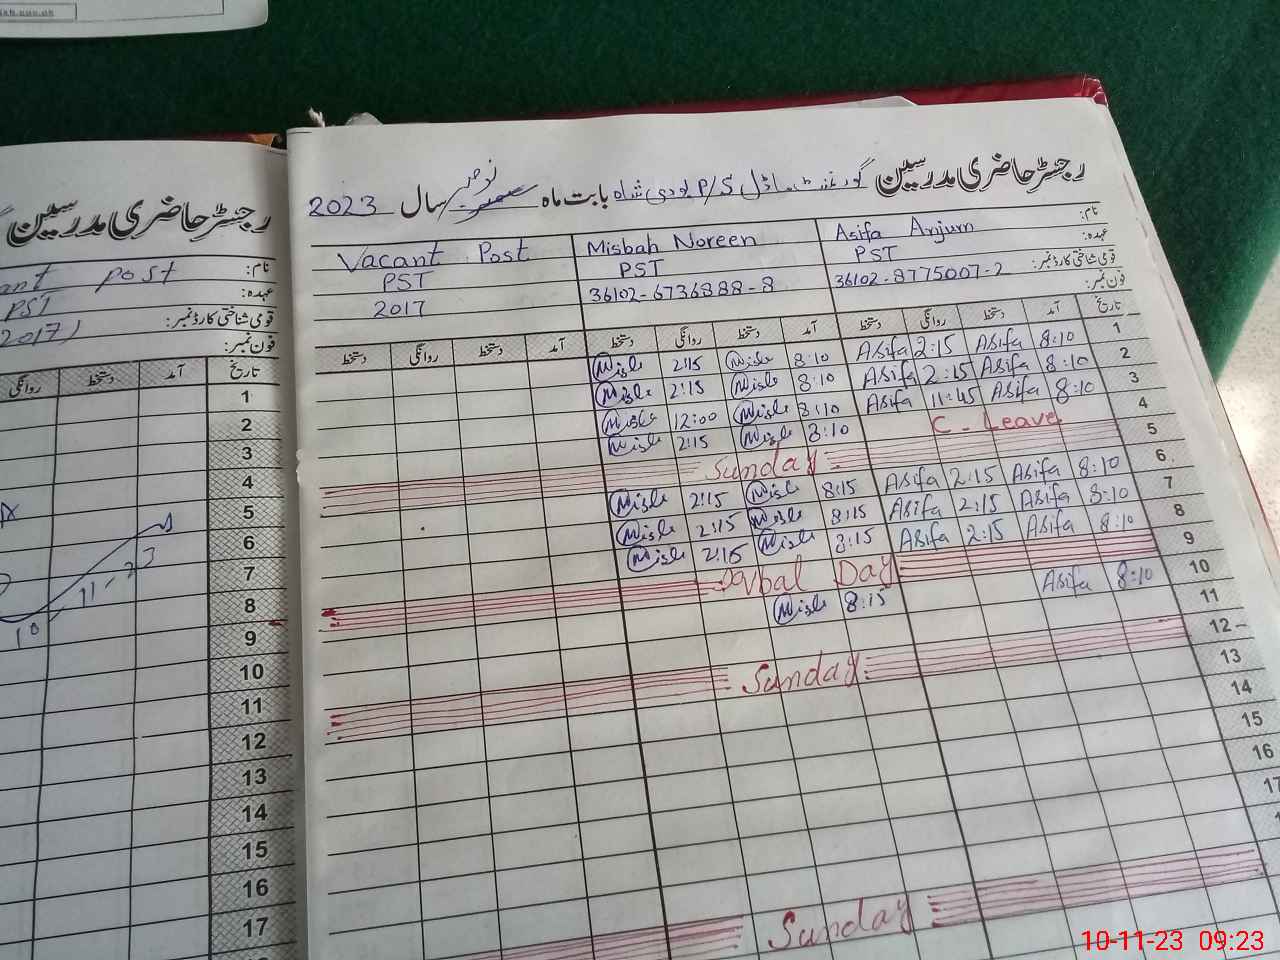 رجسٹر حاضری مدرسین گورنمنٹ ماڈل P/S بودی شاہ بابت ماہ نومبر سال 2023
نام: Asifa Anjum Misbah Noreen Vacant Post
عہدہ: PST PST PST
قومی شناختی کارڈ نمبر: 36102-8775007-2 36102-6736888-8 2017
فون نمبر:
تاریخ آمد دستخط روانگی دستخط آمد دستخط روانگی دستخط آمد دستخط روانگی دستخط
1 8:10 Asifa 2:15 Asifa 8:10 Misb 2:15 Misb
2 8:10 Asifa 2:15 Asifa 8:10 Misb 2:15 Misb
3 8:10 Asifa 11:45 Asifa 8:10 Misb 12:00 Misb
4 C-Leave 8:10 Misb 2:15 Misb
5 Sunday
6 8:10 Asifa 2:15 Asifa 8:15 Misb 2:15 Misb
7 8:10 Asifa 2:15 Asifa 8:15 Misb 2:15 Misb
8 8:10 Asifa 2:15 Asifa 8:15 Misb 2:15 Misb
9 Iqbal Day
10 8:10 Asifa 8:15 Misb
11
12 Sunday
13
14
15
16
17
Sunday
رجسٹر حاضری مدرسین
نام: post
عہدہ: PST
قومی شناختی کارڈ نمبر: 2017
فون نمبر:
تاریخ آمد دستخط روانگی
1
2
3
4
5
6
7
8
9
10
11
12
13
14
15
16
17
10-11-23 09:23